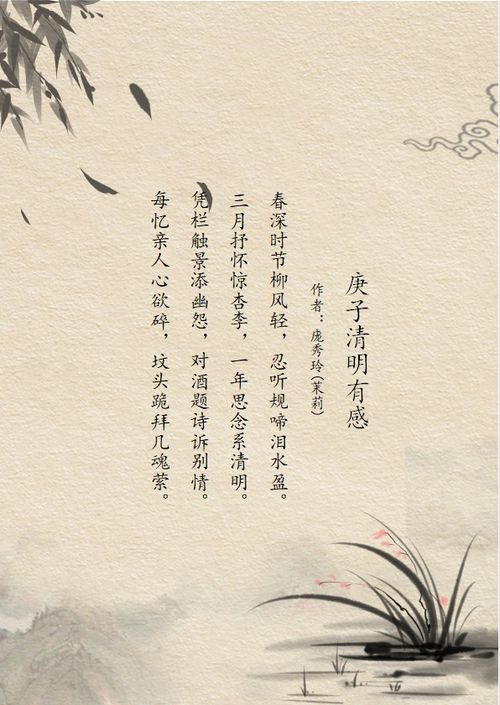 庚子清明有感
作者：庞秀玲(茉莉)
春深时节柳风轻，忍听规啼泪水盈。
三月抒怀惊杏李，一年思念系清明。
凭栏触景添幽怨，对酒题诗诉别情。
每忆亲人心欲碎，坟头跪拜几魂萦。